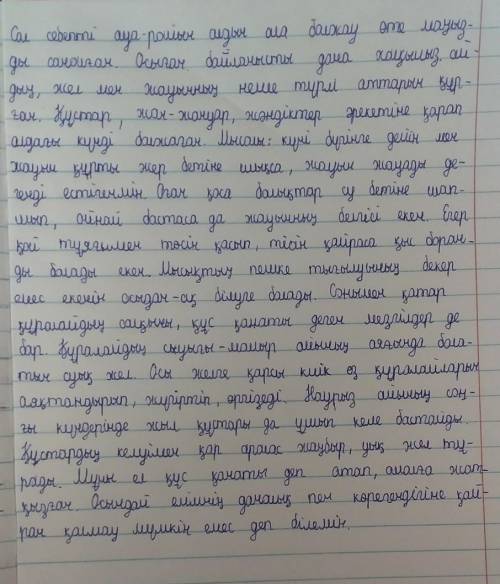 Сол себепті ауа-райын алдын ала болжау өте маңыз-
ды саналған. Осыған байланысты дана халқымыз ай-
дың, жел мен жауынның неше түрлі аттарын құр-
ған. Құстар, жан-жануар, жәндіктер әрекетіне қарап
алдағы күнді болжаған. Мысалы: күні бүрінге дейін мен
жауын құрты жер бетіне шықса, жауын жауады де-
генді естігенмін. Оған қоса балықтар су бетіне шап-
шып, ойнай бастаса да жауынның белгісі екен. Егер
қой тұяғымен төсін қасып, тісін қайраса қыс боран-
ды болады екен. Мысықтың пешке тығылуының бекер
емес екенін осыдан-ақ білуге болады. Сонымен қатар
құралайдың салқыны, құс қанаты деген мезгілдер де
бар. Құралайдың суығы-мамыр айының аяғында бола-
тын суық жел. Осы желге қарсы киік өз құралайларын
аяқтандырып, жүгіртіп, өргізеді. Наурыз айының соң-
ғы күндерінде жыл құстары да ұшып келе бастайды.
Құстардың келуімен қар аралас жаңбыр, ызық жел тұ-
рады. Мұны ел құс қанаты деп атап, амалға жат-
қызған. Осындай елімнің даналық пен көрегендігіне қай-
ран қалмау мүмкін емес деп білемін.